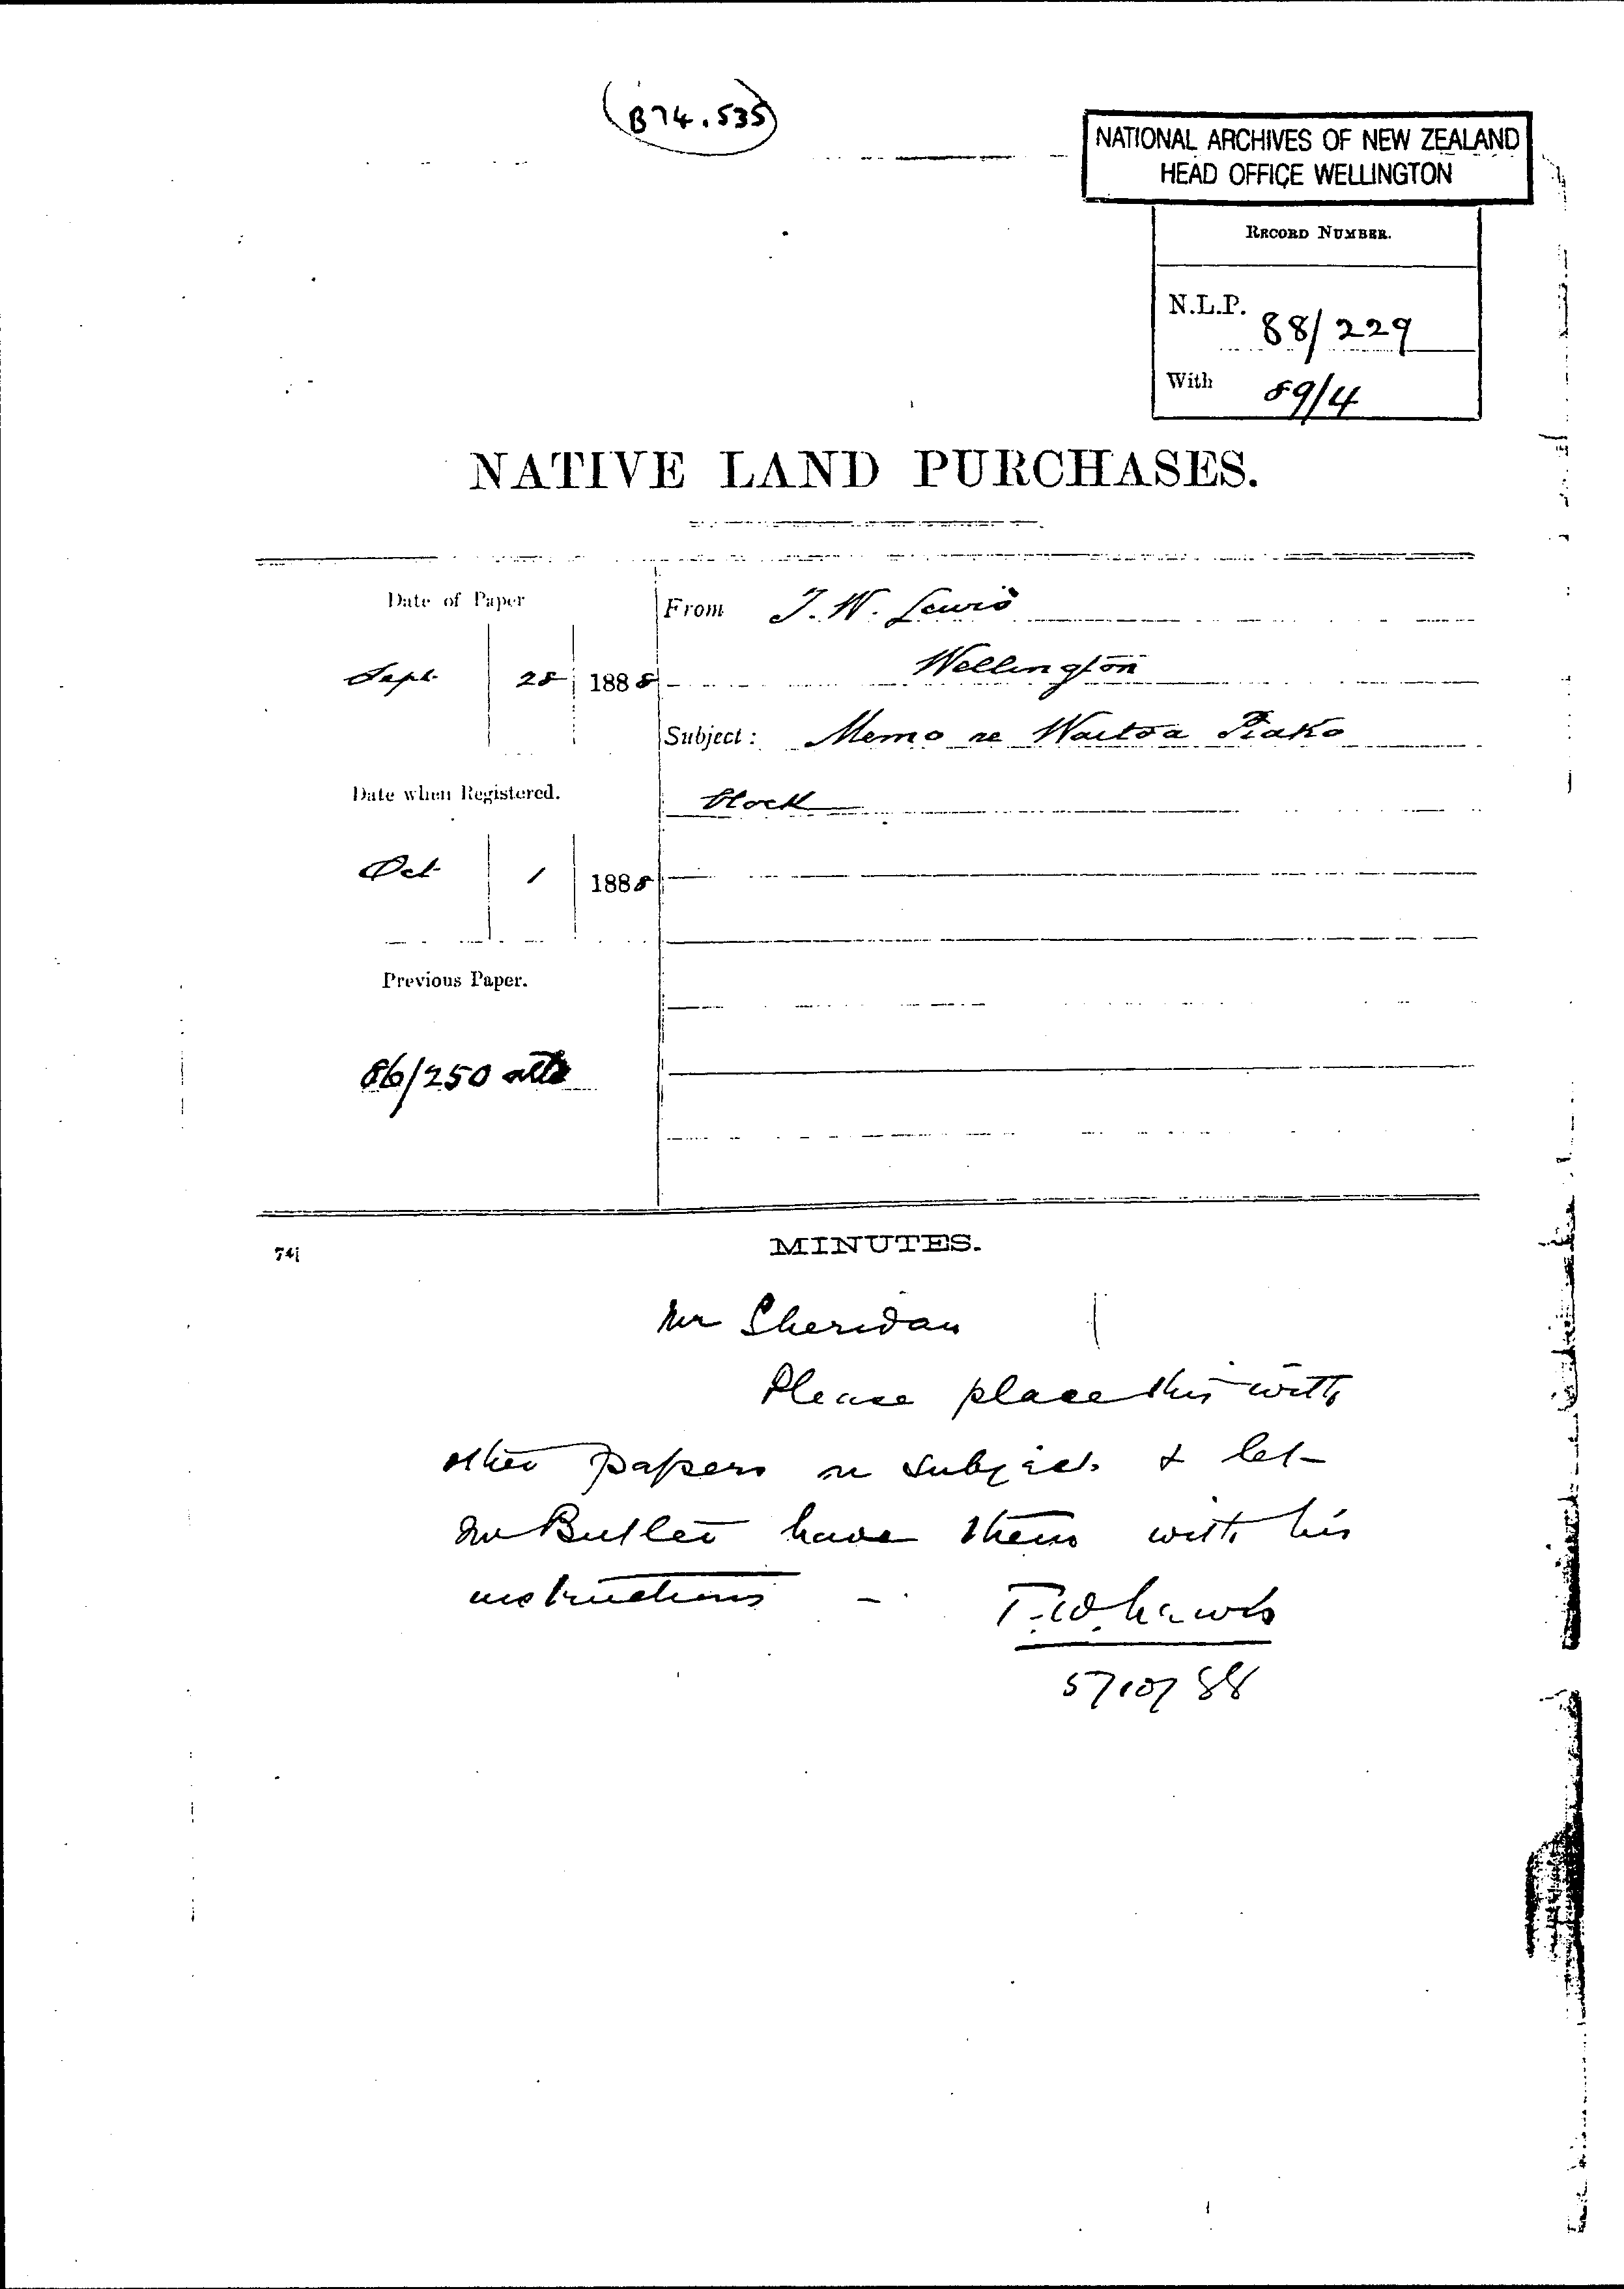 B74.535
NATIONAL ARCHIVES OF NEW ZEALAND
HEAD OFFICE WELLINGTON
RECORD NUMBER.
N.L.P. 88/229
With 89/4
NATIVE LAND PURCHASES.
Date of Paper
From T. W. Lewis
Sept. 28 1888
Wellington
Subject: Memo re Waitoa Piako
Date when Registered.
block
Oct 1 1888
Previous Paper.
86/250
MINUTES.
Mr Sheridan
Please place this with
other papers on subject & let
Mr Butler have them with his
instructions -
T.W. Lewis
5/10/88